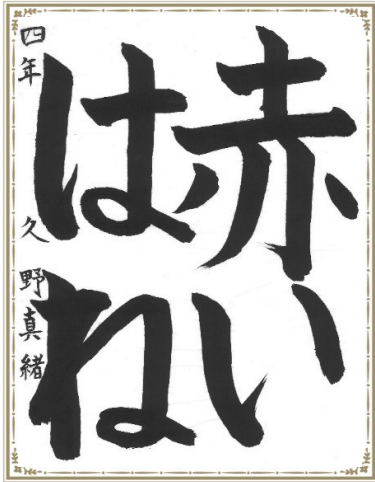 赤い
はね
四年 久野真緒